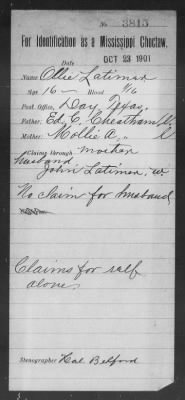 No. 3815
For Identification as a Mississippi Choctaw.
OCT 23 1901
Date
Name Ollie Latimer
Age 16 — Blood 1/16
Post Office, Day,
Father: Ed. C. Cheatham,
Mother: Mollie A. "
Claims through mother
husband
John Latimer, w
No claim for husband
Claims for self
alone.
Stenographer Hal Belford